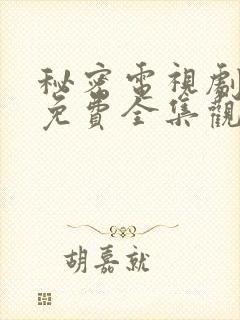 秘密電視劇
免費全集觀
胡嘉就